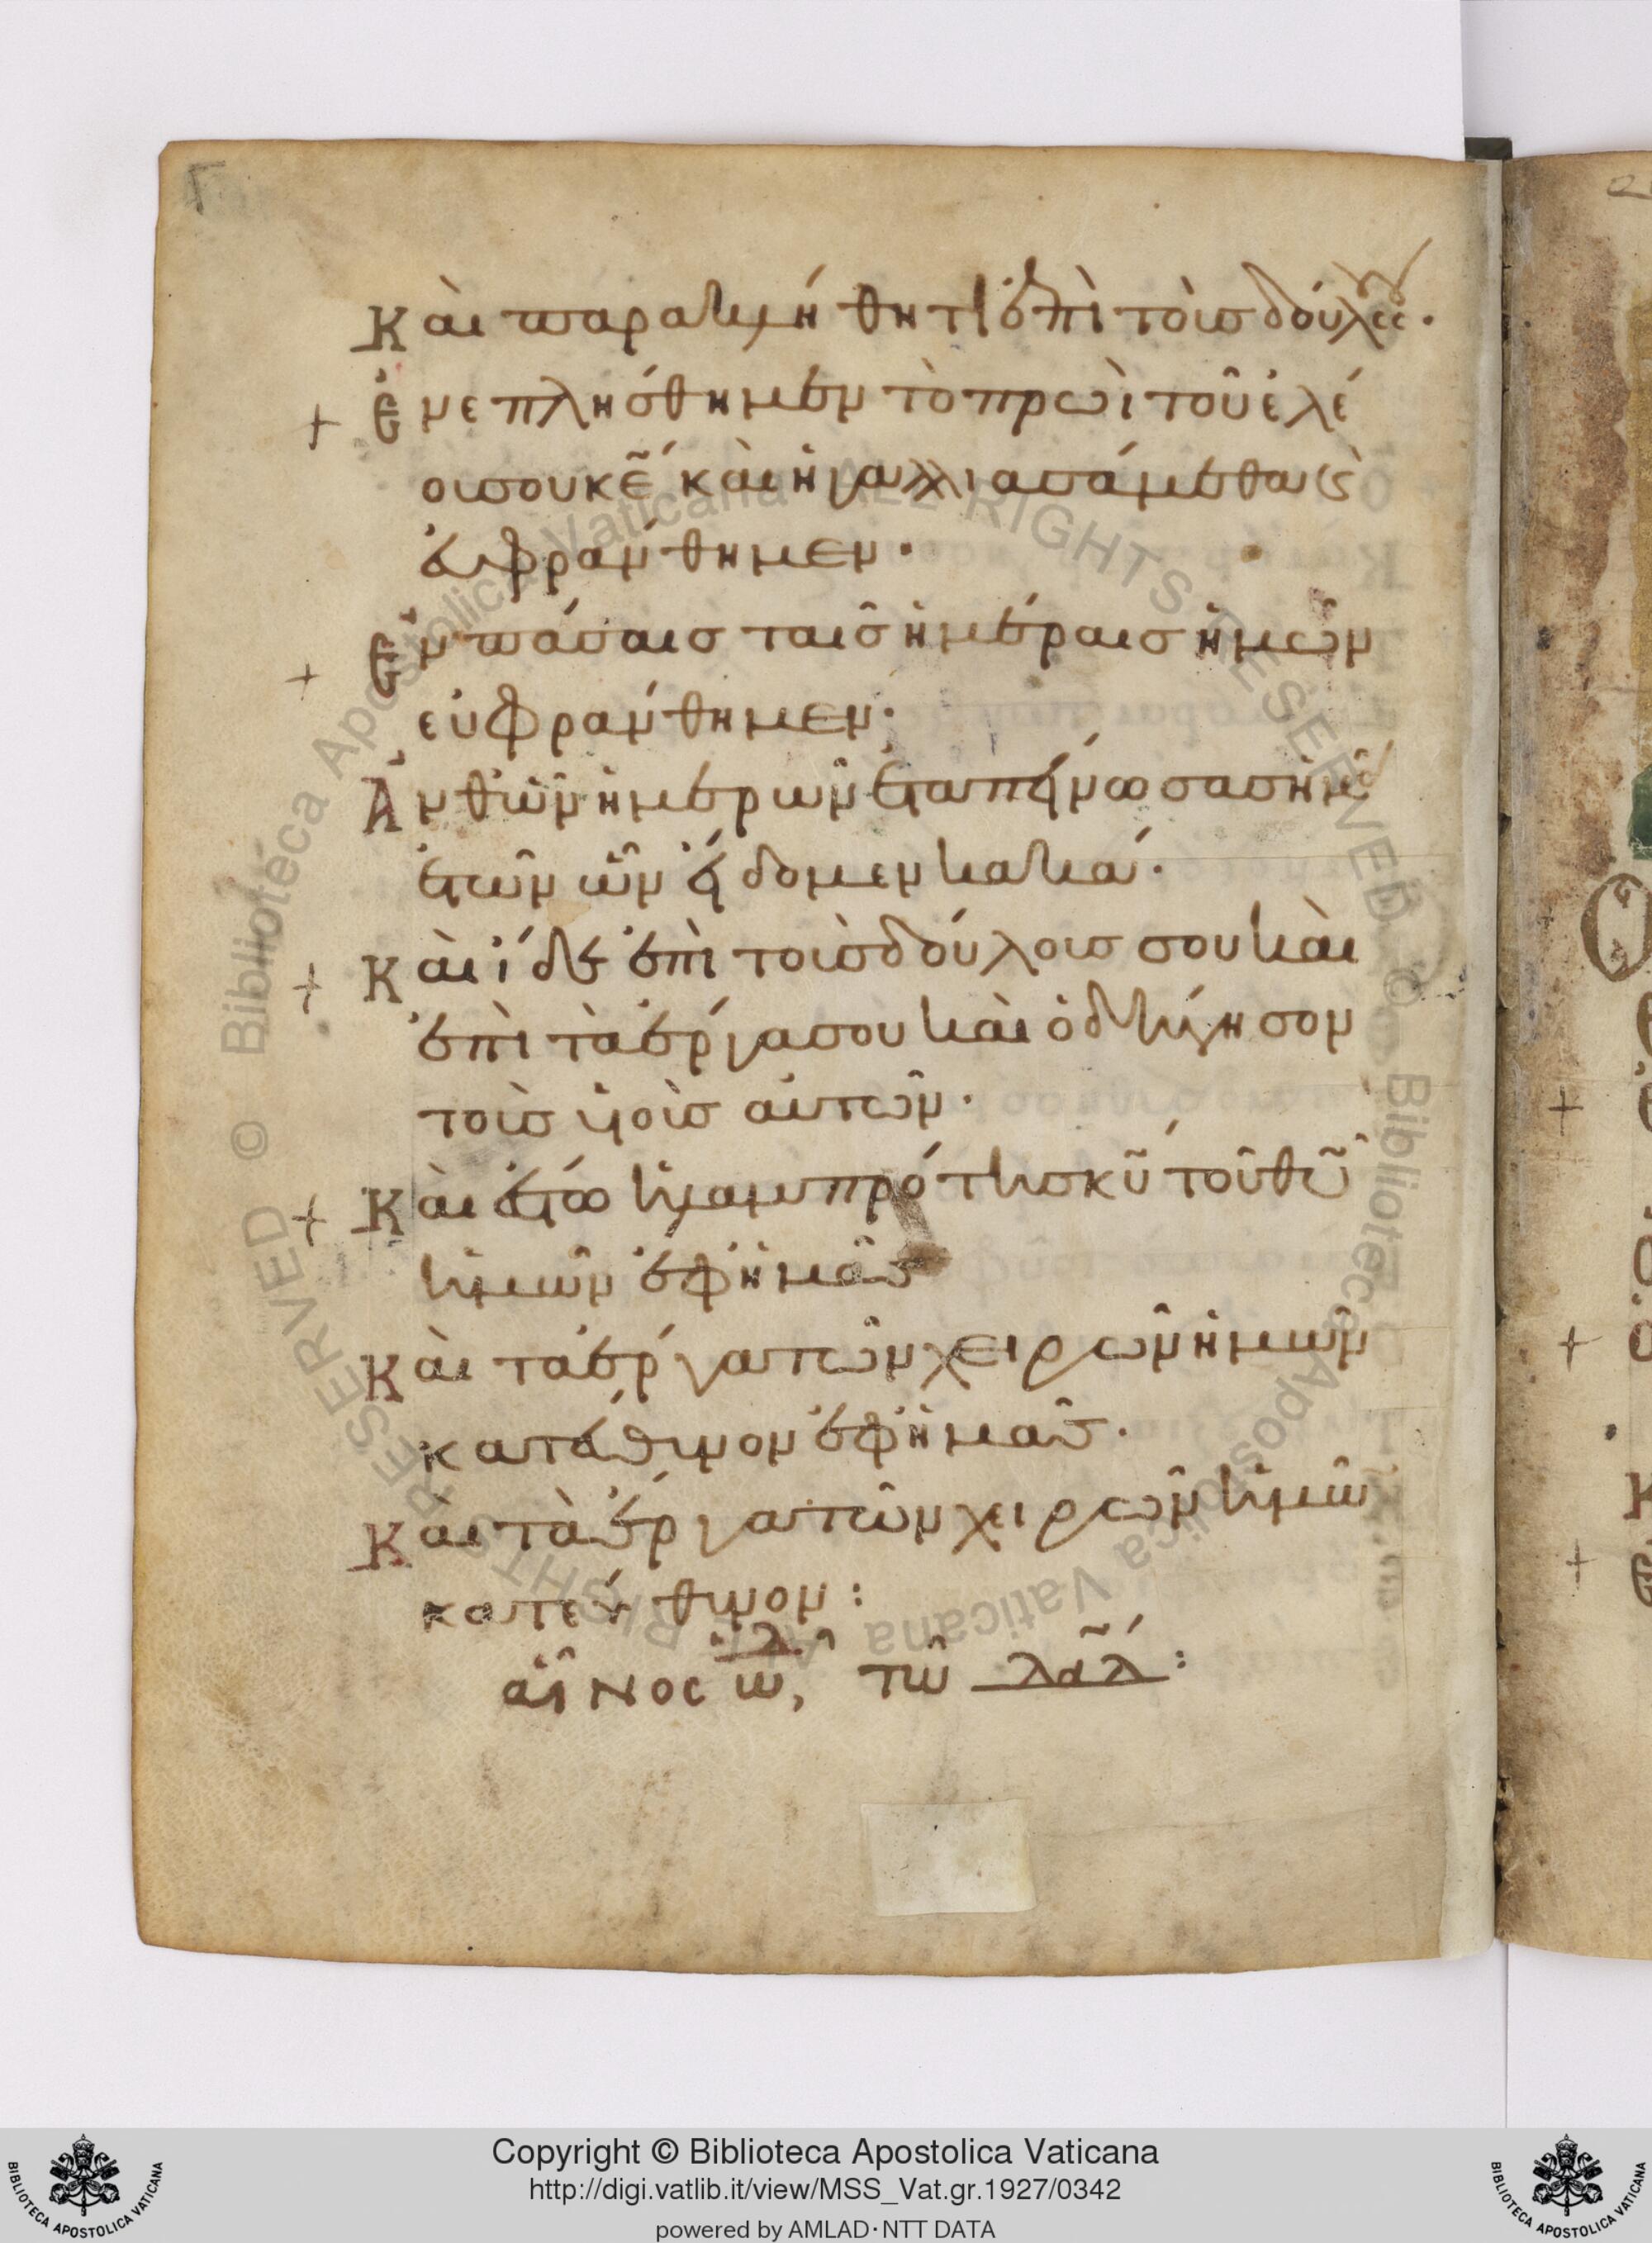 Γ
Κὰι παρακλήθητι ἐπὶ τοὶσ δούλοις σου.
+ Ἐνεπλήσθημεν τὸ πρωὶ τοῦ ἐλέ
ουσ σου κ̅ε̅ κὰι ἠγαλλιασάμεθα κ(αὶ)
ἐυφράνθημεν.
+ Ἐν πάσαισ ταῖσ ἡμέραισ ἡμῶν
εὐφράνθημεν.
Ἀνθ ὧν ἡμερῶν ἐταπείνωσασ ἡμᾶς
ἐτῶν ὧν εἴδομεν κακά.
+ Κὰι ἴδε ἐπὶ τοὶσ δούλοισ σου κὰι
ἐπὶ τὰ ἔργα σου κὰι ὁδήγησον
τοὶσ ὑιοὶσ αὐτῶν.
+ Κὰι ἔστω ἡ λαμπρότησ κ̅υ̅ τοῦ θ̅υ̅
ἡμῶν ἐφ ἡμᾶσ
Κὰι τὰ ἔργα τῶν χειρῶν ἡμῶν
κατέυθυνον ἐφ ἡμᾶσ.
Κὰι τὰ ἔργα τῶν χειρῶν ἡμῶν
κατέυθυνον:
αἶνος ὠ̅δ̅, τῶ δ̅α̅δ̅:
+
+
+
Copyright © Biblioteca Apostolica Vaticana
http://digi.vatlib.it/view/MSS_Vat.gr.1927/0342
powered by AMLAD·NTT DATA
BIBLIOTECA APOSTOLICA VATICANA
BIBLIOTECA APOSTOLICA VATICANA
© Biblioteca Apostolica Vaticana ALL RIGHTS RESERVED © Biblioteca Apostolica Vaticana ALL RIGHTS RESERVED